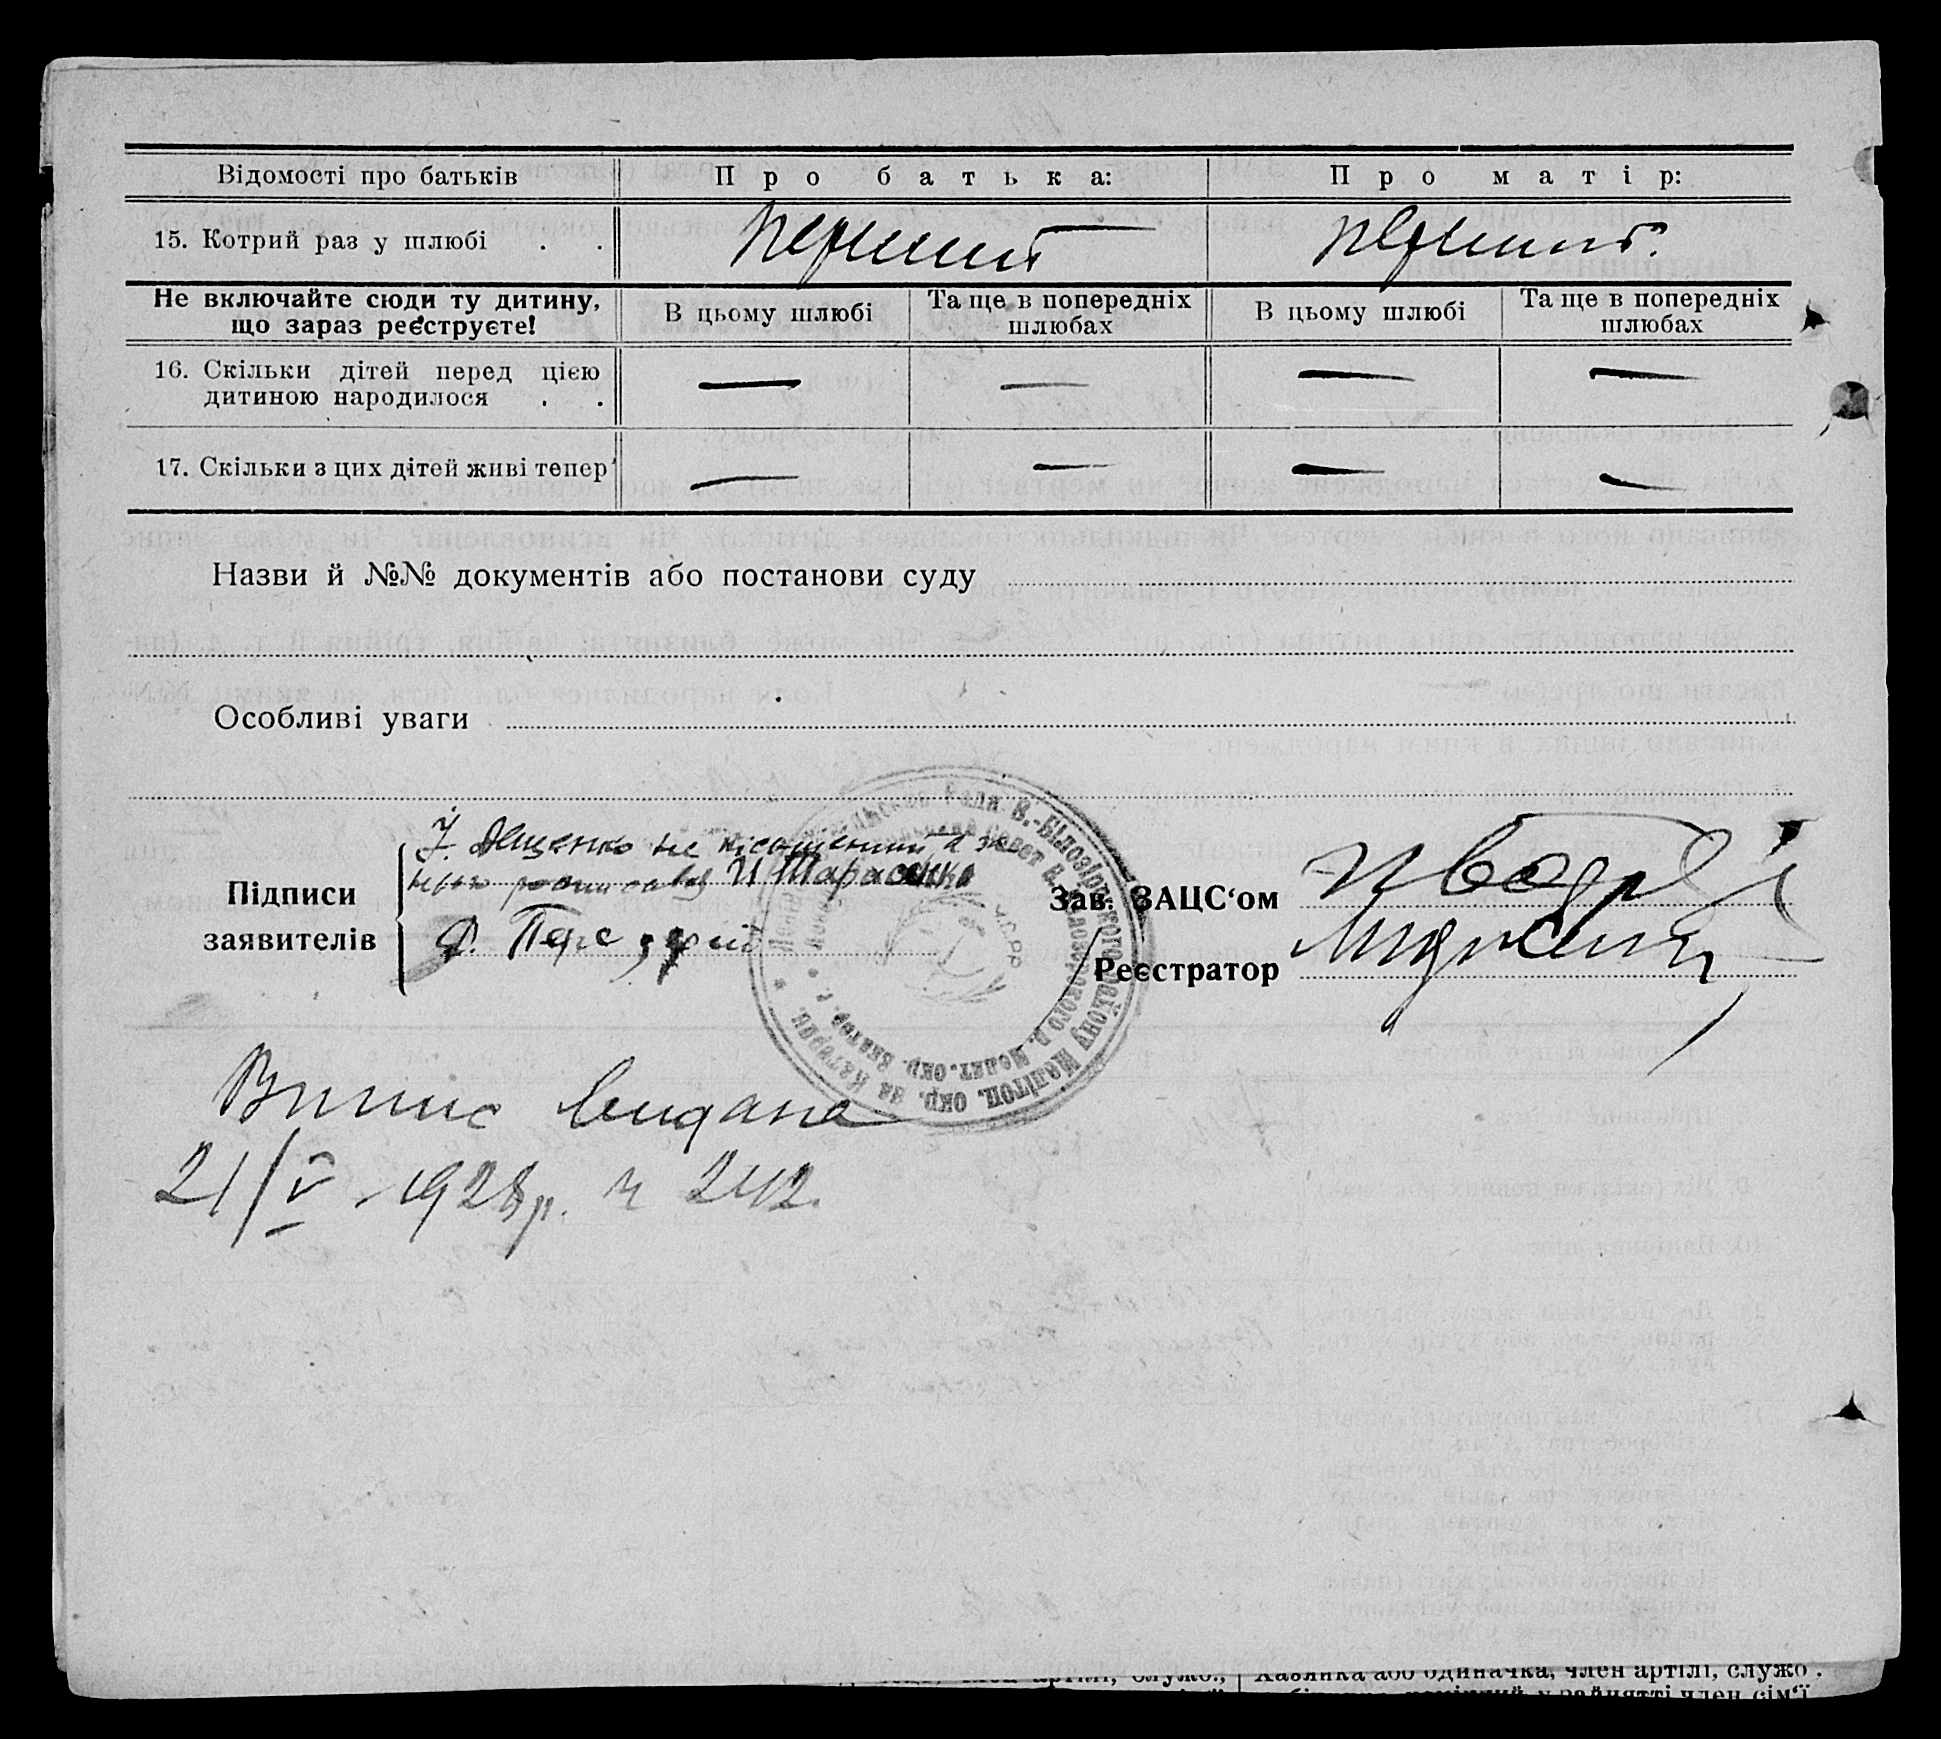 Відомості про батьків
Про батька:
Про матір:
15. Котрий раз у шлюбі . .
перший
перший.
Не включайте сюди ту дитину,
що зараз реєструєте!
В цьому шлюбі
Та ще в попередніх
шлюбах
В цьому шлюбі
Та ще в попередніх
шлюбах
16. Скільки дітей перед цією
дитиною народилося . .
— — — —
17. Скільки з цих дітей живі тепер
— — — —
Назви й №№ документів або постанови суду
Особливі уваги
Підписи
заявителів
не писменний а за
нього росписався И Тарасенко
Зав. ЗАЦС‘ом
Реєстратор
Рада В.-Білозірського району Мелітоп. окр. на Катерин.
У.С.Р.Р.
Випис видано
21/V - 1928 р. ч 242.
Хазяйка або одиначка, член артілі, служб.